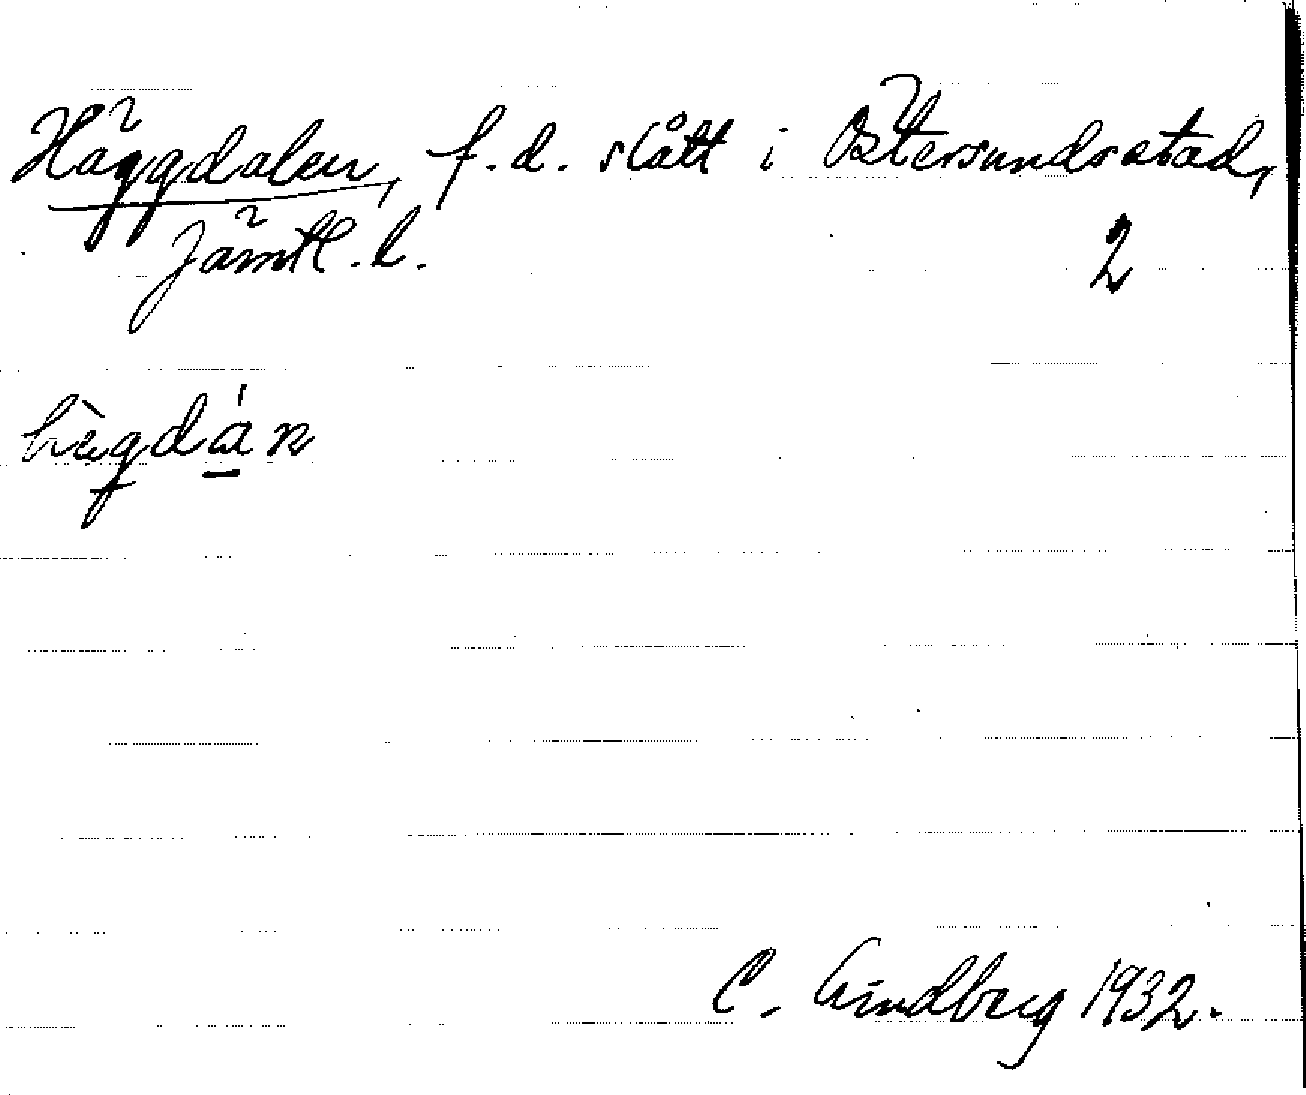 Häggdalen, f.d. slått i Östersunds stad,
Jämtl. l. 2
hægdán
C. Lindberg 1932.